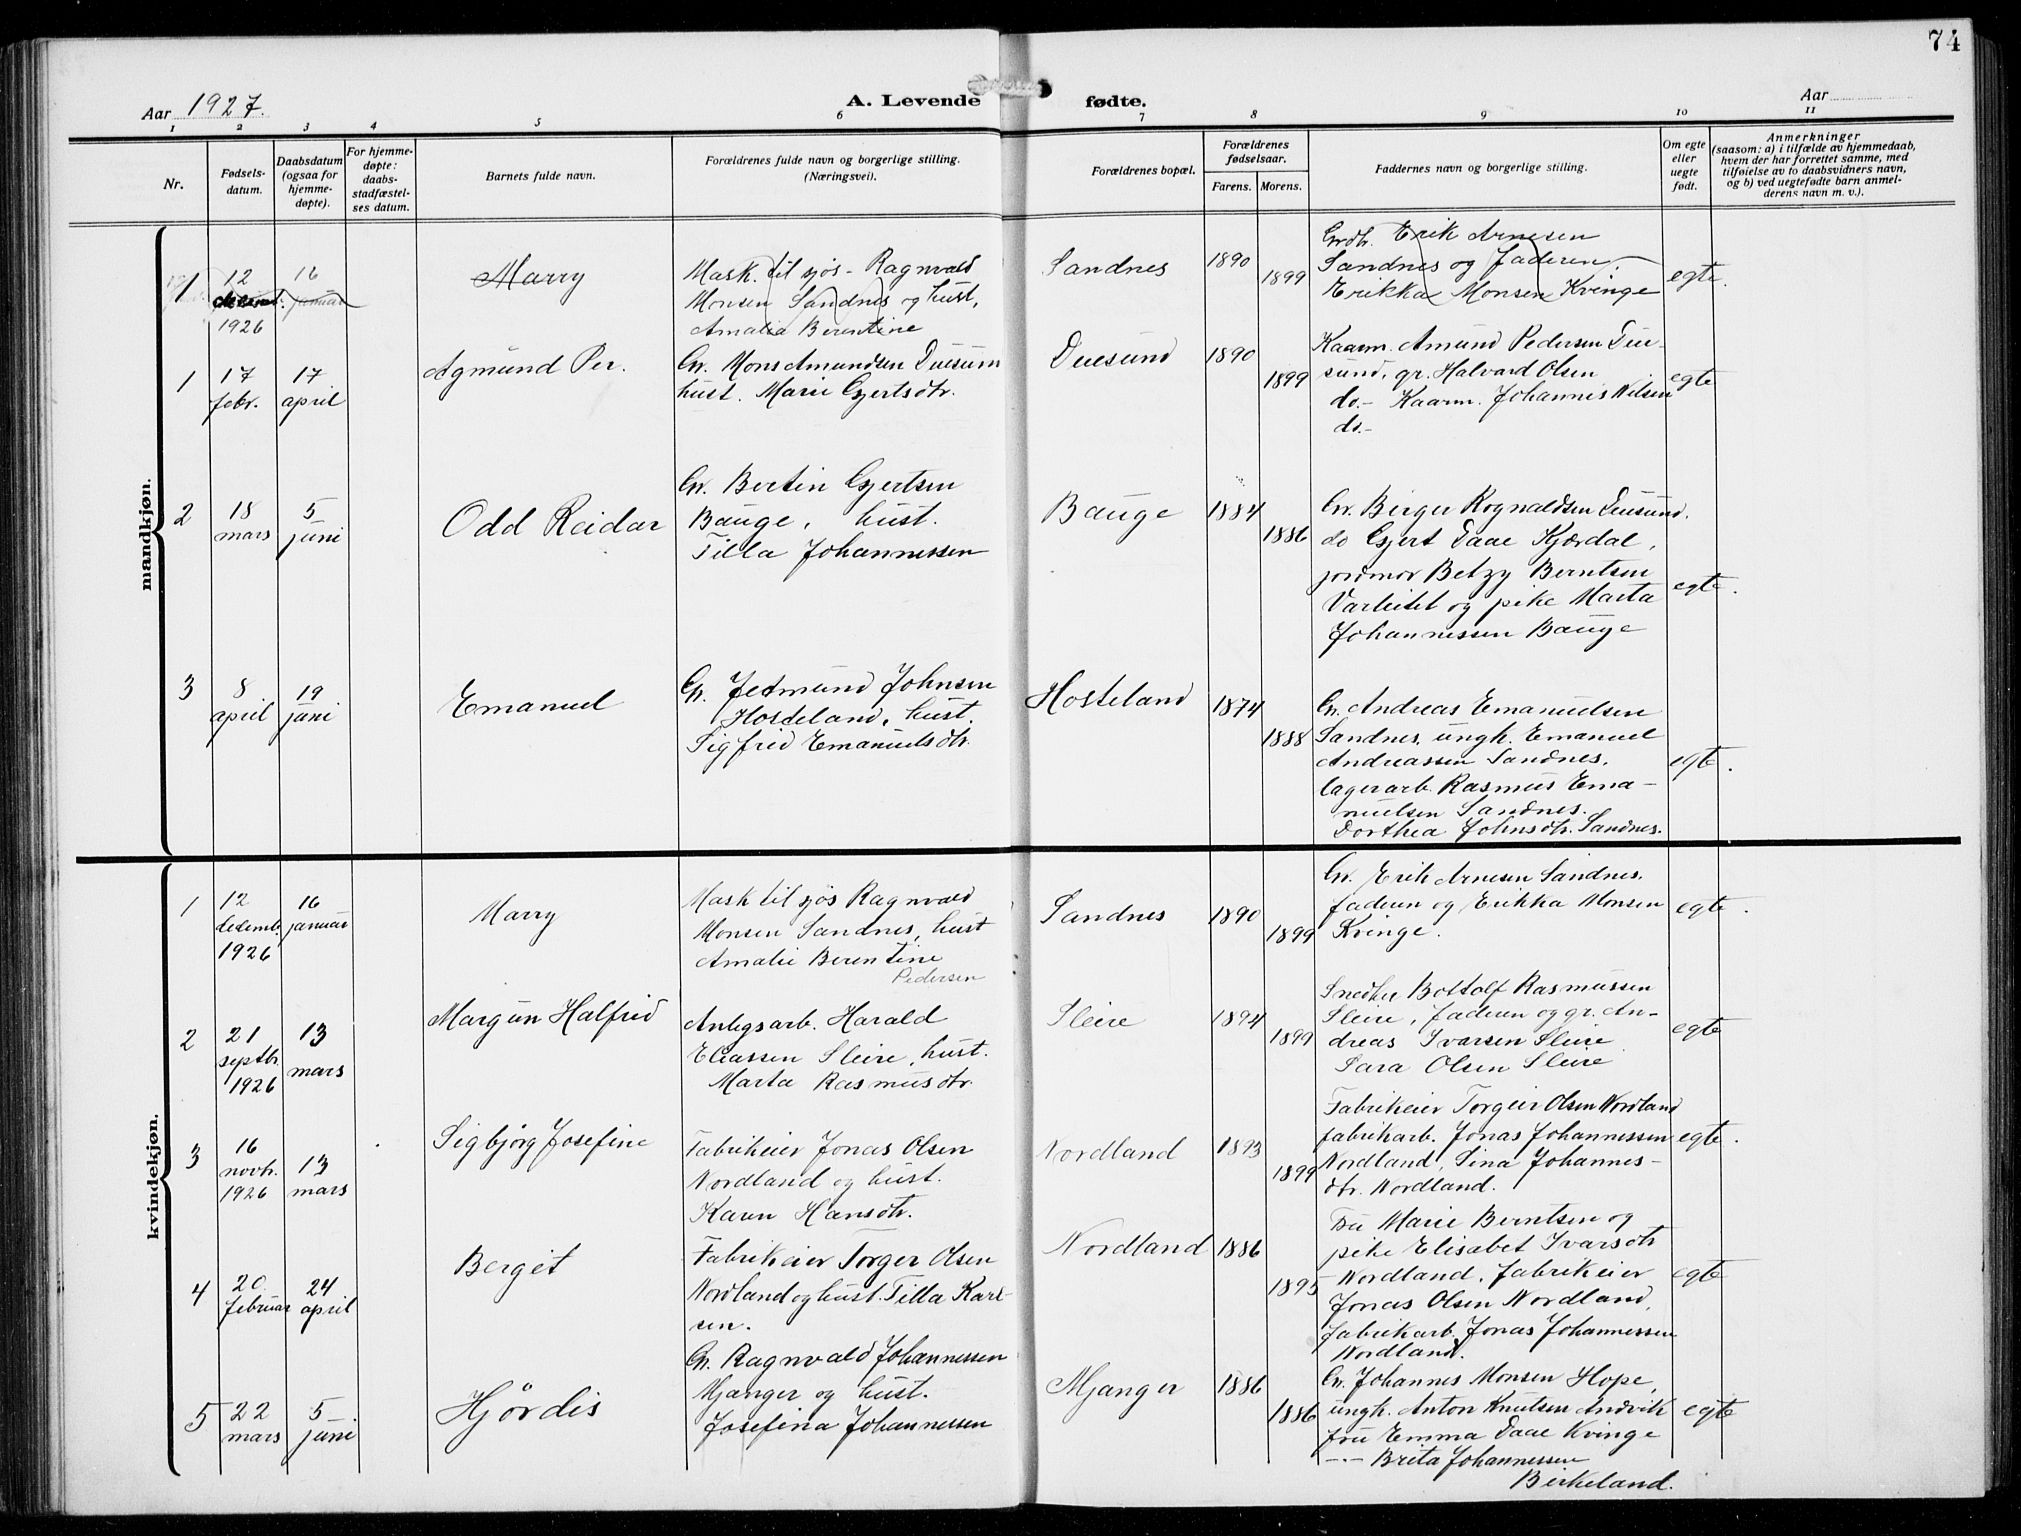 74
Aar 1927.
A. Levende fødte.
Aar
1 2 3 4 5 6 7 8 9 10 11
Nr.
Fødselsdatum.
Daabsdatum (ogsaa for hjemmedøpte).
For hjemmedøpte: daabsstadfæstelses datum.
Barnets fulde navn.
Forældrenes fulde navn og borgerlige stilling. (Næringsvei).
Forældrenes bopæl.
Forældrenes fødselsaar.
Farens. Morens.
Faddernes navn og borgerlige stilling.
Om egte eller uegte født.
Anmerkninger
(saasom: a) i tilfælde av hjemmedaab,
hvem der har forrettet samme, med
tilføielse av to daabsvidners navn,
og b) ved uegtefødte barn anmelderens navn m. v.).
mandkjøn.
1
12
1926
16
januar
Marry
Mask. til sjøs - Ragnvald
Monsen Sandnes og hust,
Amalia Berentine
Sandnes
1890
1899
Grdbr. Erik Arnesen
Sandnes og faderen
Erikka Monsen Kvinge
egte.
1
17
febr.
17
april
Agmund Per.
Gr. Mons Amundsen Duesund
hust. Marie Gjertsdtr.
Duesund
1890
1899
Kaarm. Amund Pedersen Due-
sund, gr. Halvard Olsen
do.- Kaarm. Johannis Nilsen
do.-
egte
2
18
mars
5
juni
Odd Reidar
Gr. Bertin Gjertsen
Bauge, hust.
Tilla Johannessen
Bauge
1884
1886
Gr. Birger Rognaldsen Duesund.
do Gjert Daae Kjærdal,
jordmor Betzy Berntsen
Varleitet og pike Marta
Johannessen Bauge
egte.
3
8
april
19
juni
Emanuel
Gr. Jetmund Johnsen
Hosteland, hust.
Sigfrid Emanuelsdtr.
Hosteland
1874
1888
Gr. Andreas Emanuelsen
Sandnes, ungk. Emanuel
Andreassen Sandnes,
lagerarb. Rasmus Ema-
nuelsen Sandnes.
Dorthea Johnsdtr. Sandnes.
egte.
kvindekjøn.
1
12
desemb.
1926
16
januar
Marry
Mask til sjøs Ragnvald
Monsen Sandnes, hust
Amalie Berentine
Pedersen
Sandnes
1890
1899
Gr. Erik Arnesen Sandnes,
faderen og Erikka Monsen
Kvinge.
egte.
2
21
septbr.
1926
13
mars
Margun Halfrid
Anlegsarb. Harald
Eliassen Sleire, hust.
Marta Rasmusdtr.
Sleire
1894
1899
Snedker Bottolf Rasmussen
Sleire, faderen og gr. An-
dreas Ivarsen Sleire
Sara Olsen Sleire
egte
3
16
novbr.
1926
13
mars
Sigbjørg Josefine
Fabrikeier Jonas Olsen
Nordland og hust.
Karen Hansdtr.
Nordland
1893
1899
Fabrikeier Torgeir Olsen Nordland
fabrikarb. Jonas Johannessen
Nordland, Sina Johannes-
dtr. Nordland.
egte.
4
20
februar
24
april
Berget
Fabrikeier Torger Olsen
Nordland og hust. Tilla Karl-
sen.
Nordland
1886
1895
Fru Marie Berntsen og
pike Elisabet Ivarsdtr
Nordland, fabrikeier
Jonas Olsen Nordland,
fabrikarb. Jonas Johannessen
Nordland.
egte
5
22
mars
5
juni
Hjørdis
Gr. Ragnvald Johannessen
Mjanger og hust.
Josefina Johannessen
Mjanger
1886
1886
Gr. Johannes Monsen Hope,
ungk. Anton Knutsen Andvik
fru Emma Daae Kvinge
-- Brita Johannessen
Birkeland.
egte